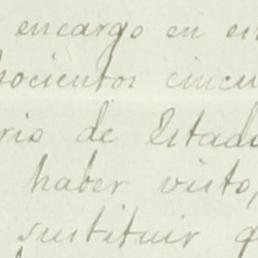 encargo en
ocientos cincu
rio de Estado
haber visto,
sustituir